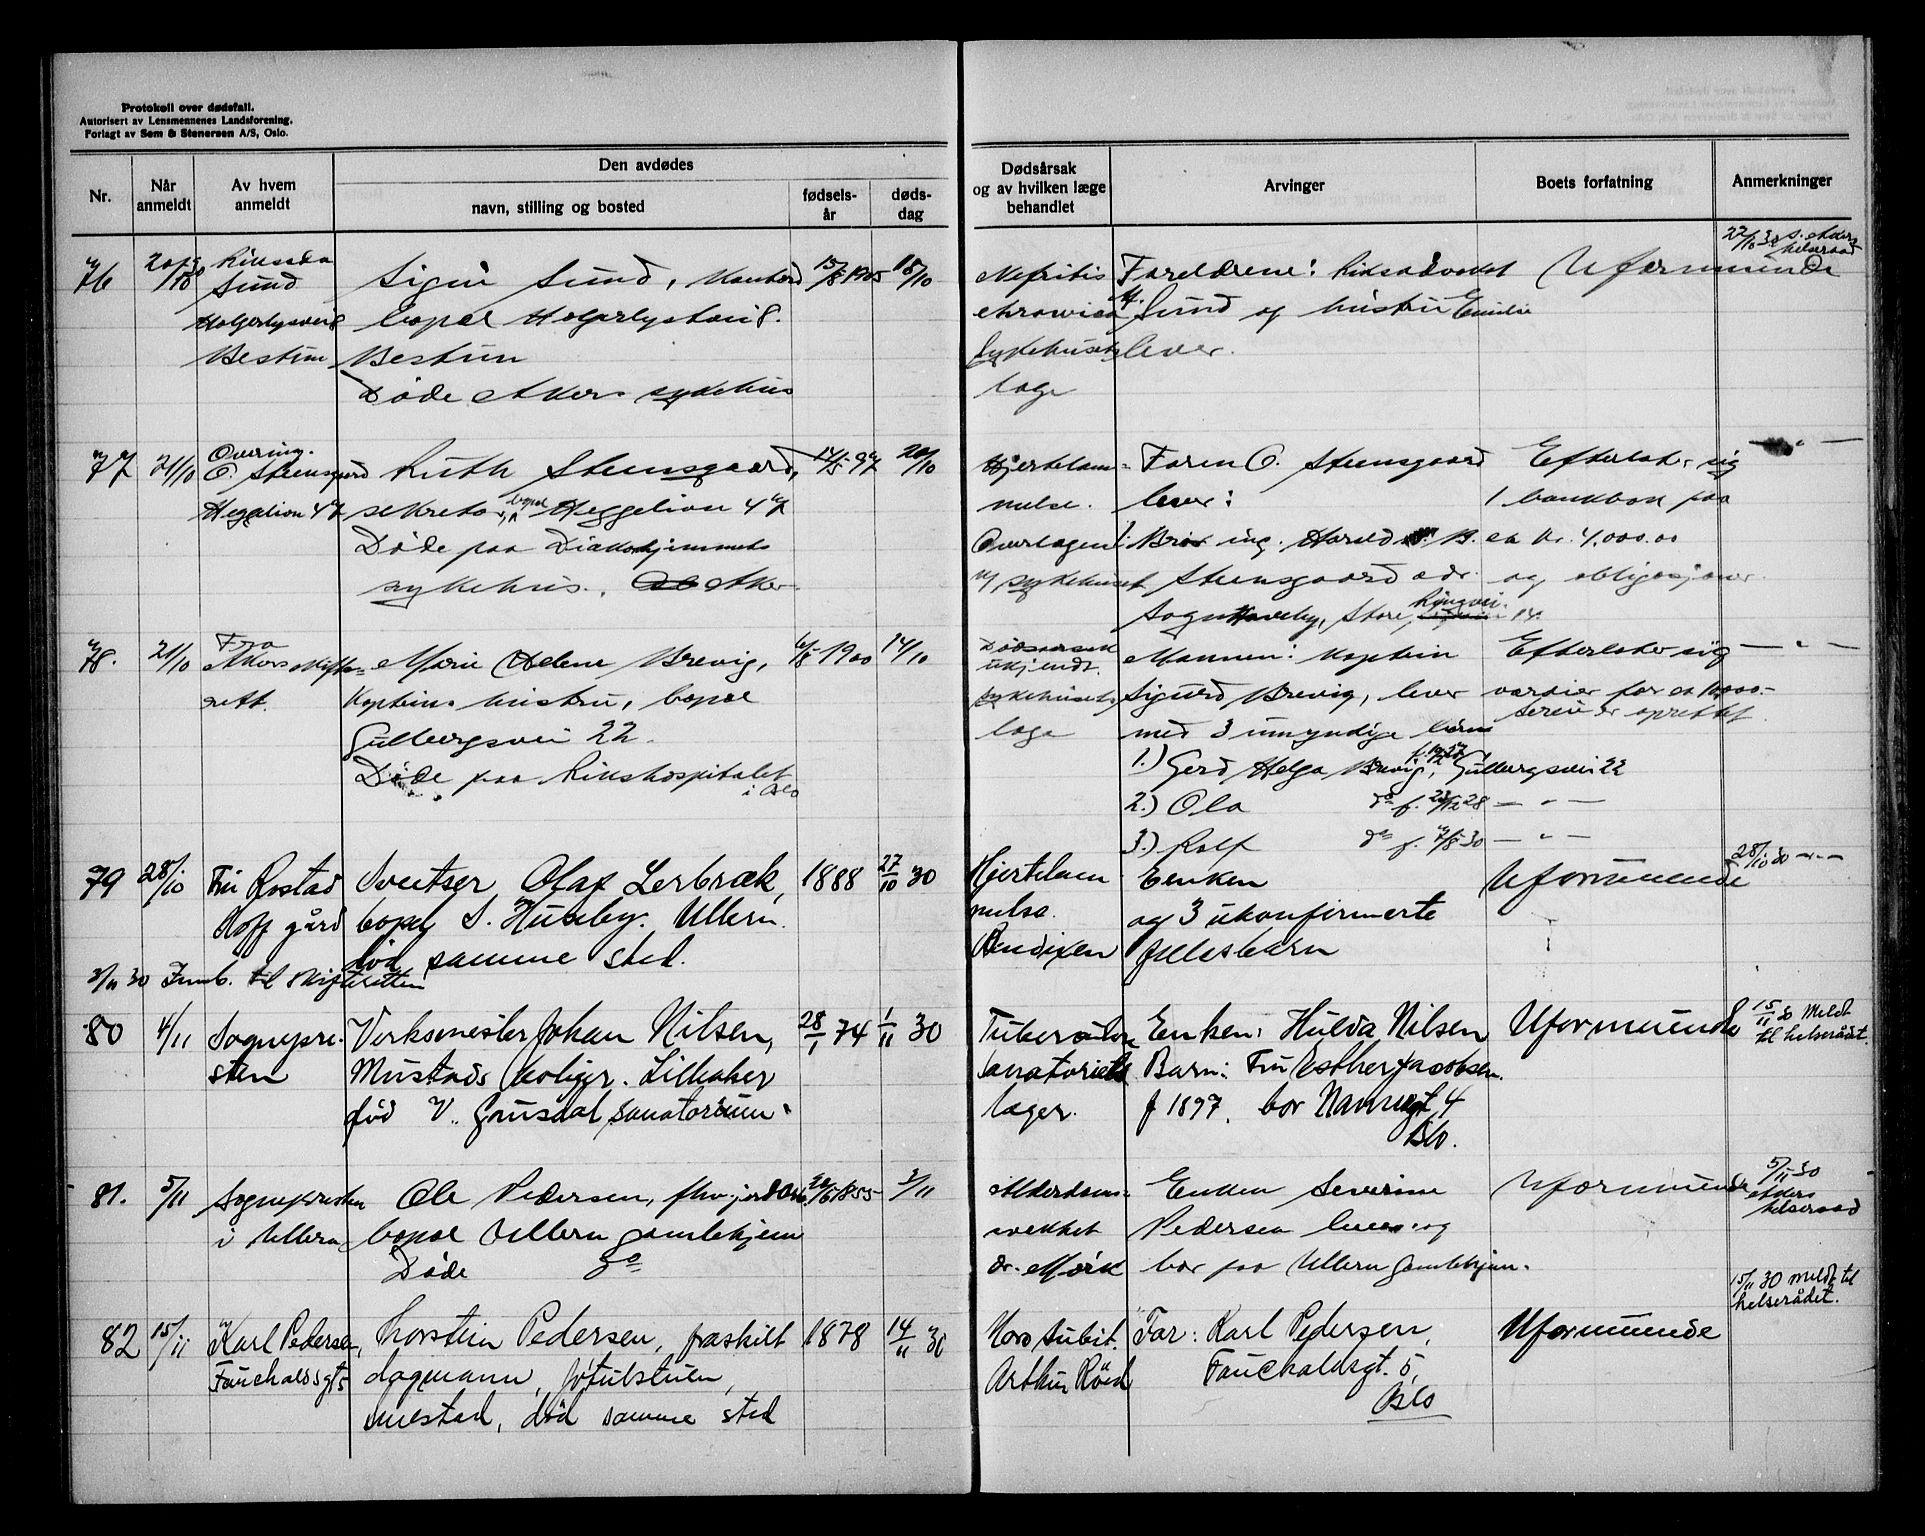 Protokoll over dødsfall.
Autorisert av Lensmennenes Landsforening.
Forlagt av Sem & Stenersen A/S, Oslo.
Nr.
Når anmeldt
Av hvem anmeldt
Den avdødes
navn, stilling og bosted
fødsels-år
døds-dag
Dødsårsak og av hvilken læge behandlet
Arvinger
Boets forfatning
Anmerkninger
76
20/10 30
Sund
Holgerlystvei 8
Bestum
Sigrid Sund,
bopæl Holgerlystvei 8.
Bestum
Døde Akers sykehus
15/8 1905
18/10
Nefritis
chronica
Sykehusets
læge
Foreldrene: Riksadvokat
Sund og hustru Emilie
lever.
Uformuende
22/10 30 s. Akers
helseraad
77
21/10
Overing.
O. Steensgaard
Heggelien 47
Ruth Steensgaard,
sekretær, bopæl Heggelien 47
Døde paa Diakonhjemmets
sykehus, Aker
14/5 97
20/10
Hjertelam-
melse.
Overlægen
v/ sykehuset
Faren O. Steensgaard
lever:
1. Bror ing. Harald B.
Steensgaard adr.
Sogn Haveby, Store Ringvei 14.
Efterlater sig
1 bankbok paa
ca kr. 4.000.00
og obligasjoner.
— " —
78.
21/10
Fra
Akers skifte-
rett.
Marie Helene Brevig,
Kapteins hustru, bopæl
Gulbergsvei 22.
Døde paa Rikshospitalet
i Oslo
6/8 1900
14/10
Dødsaarsak
ukjendt.
sykehusets
læge
Mannen: Kaptein
Sigurd Brevig, lever
med 3 umyndige børn
1.) Gerd Helga Brevig, Gulbergsvei 22
2.) Ola do f. 23/12 28 — " —
3.) Rolf do f. 7/8 30 — " —
Efterlater sig
værdier for ca 10,000.-
Serein er oprettet.
— " —
79
28/10
Fru Rostad
Hoff gård
Sveitser Olaf Lerbræk,
bopæl S. Huseby. Ullern.
død samme sted.
1888
27/10 30
Hjertelam
melse.
Bendixen
Enken
og 3 ukonfirmerte
fellesbarn
Uformuende
28/10 30 — " —
3/11 30 Innb. til skifteretten
80
4/11
Sognepre-
sten
Verksmester Johan Nilsen,
Mustads boliger. Lilleaker
død V. Gausdal sanatorium.
28/1 74
1/11 30
Tuberculose
Sanatoriets
læger.
Enken: Hulda Nilsen
Barn: Fru Esther Jacobsen.
f 1897, bor Nannestgt. 4
Oslo.
Uformuende
15/11 30 Meldt
til helserådet.
81.
5/11
Sognepresten
i Ullern
Ole Pedersen, fhv. jordarb.
bopæl Ullern gamlehjem
Døde do
20/6 1855
3/11
Alderdoms-
svekket
dr. Mørk
Enken Severine
Pedersen lever og
bor paa Ullern Gamlehjem.
Uformuende
5/11 30
Akers
helseraad
82
15/11
Karl Pedersen,
Fauchaldsgt 5
Thorstein Pedersen, fraskilt
dagmann, Jøtulstuen,
Smestad, død samme sted
1878
14/11 30
Mors subit.
Arthur Röed
Far: Karl Pedersen,
Fauchaldsgt. 5,
Oslo
Uformuende
15/11 30 meldt til
helserådet.